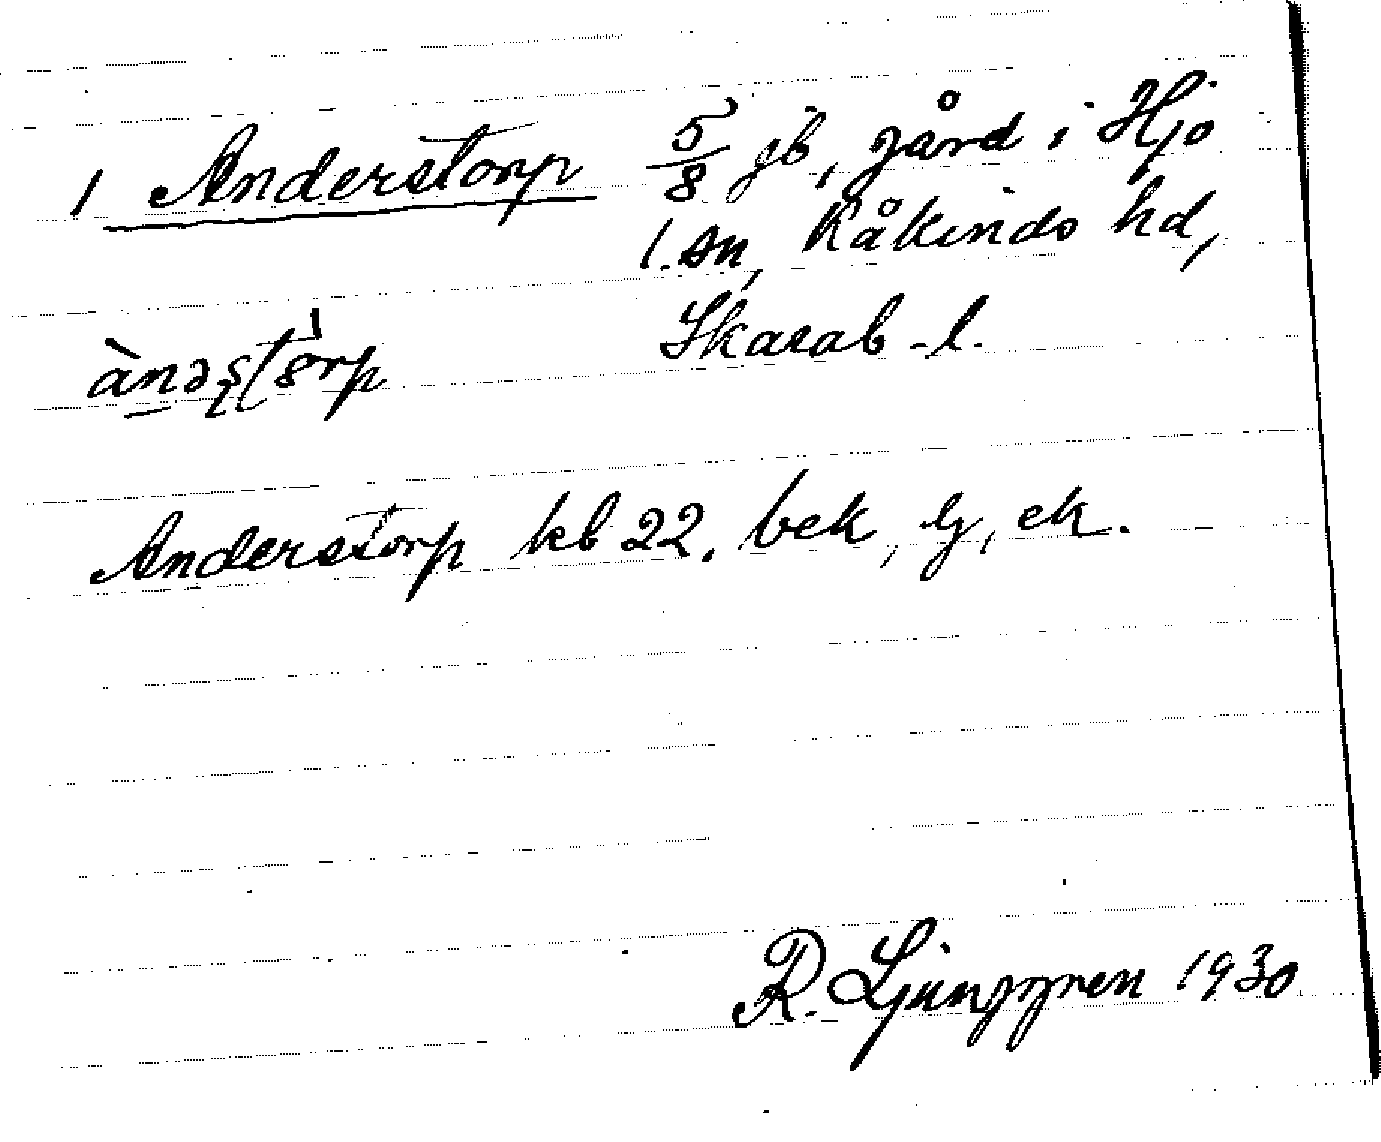 1 Anderstorp 5/8 jb, gård i Hjo
l. sn, Kåkinds hd,
Skarab - l.
Anderstorp kb 22. bek, lj, ek.
R. Ljunggren 1930